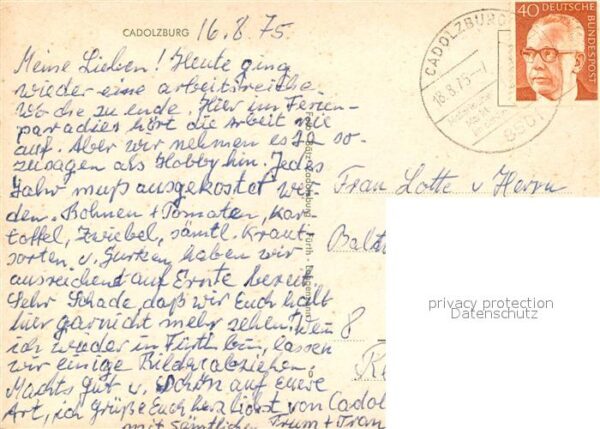 CADOLZBURG 16.8.75.
Meine Lieben! Heute ging
wieder eine arbeitsreiche
Woche zu ende. Hier im Ferien-
paradies hört die Arbeit nie
auf. Aber wir nehmen es ja so-
zusagen als Hobby hin. Jedes
Jahr muß ausgekostet wer-
den. Bohnen + Tomaten, Kar-
toffel, Zwiebel, sämtl. Kraut-
sorten u. Gurken haben wir
ausreichend auf Ernte bereit.
Sehr Schade, daß wir Euch halt
hier garnicht mehr sehen! Wenn
ich wieder in Fürth bin, lassen
wir einige Bilder abziehen.
Machts gut u. Schön auf eure
Art, ich grüße Euch herzlichst von Cadol
mit sämtlichen
40 DEUTSCHE
BUNDESPOST
CADOLZBURG
18.8.75-
8501
Frau Lotte u Herrn
8
privacy protection
Datenschutz